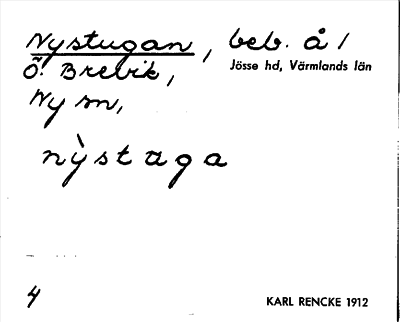 Nystugan, beb. å /
Ö. Brevik, Jösse hd, Värmlands län
Ny sn,
nỳstaga
4
KARL RENCKE 1912